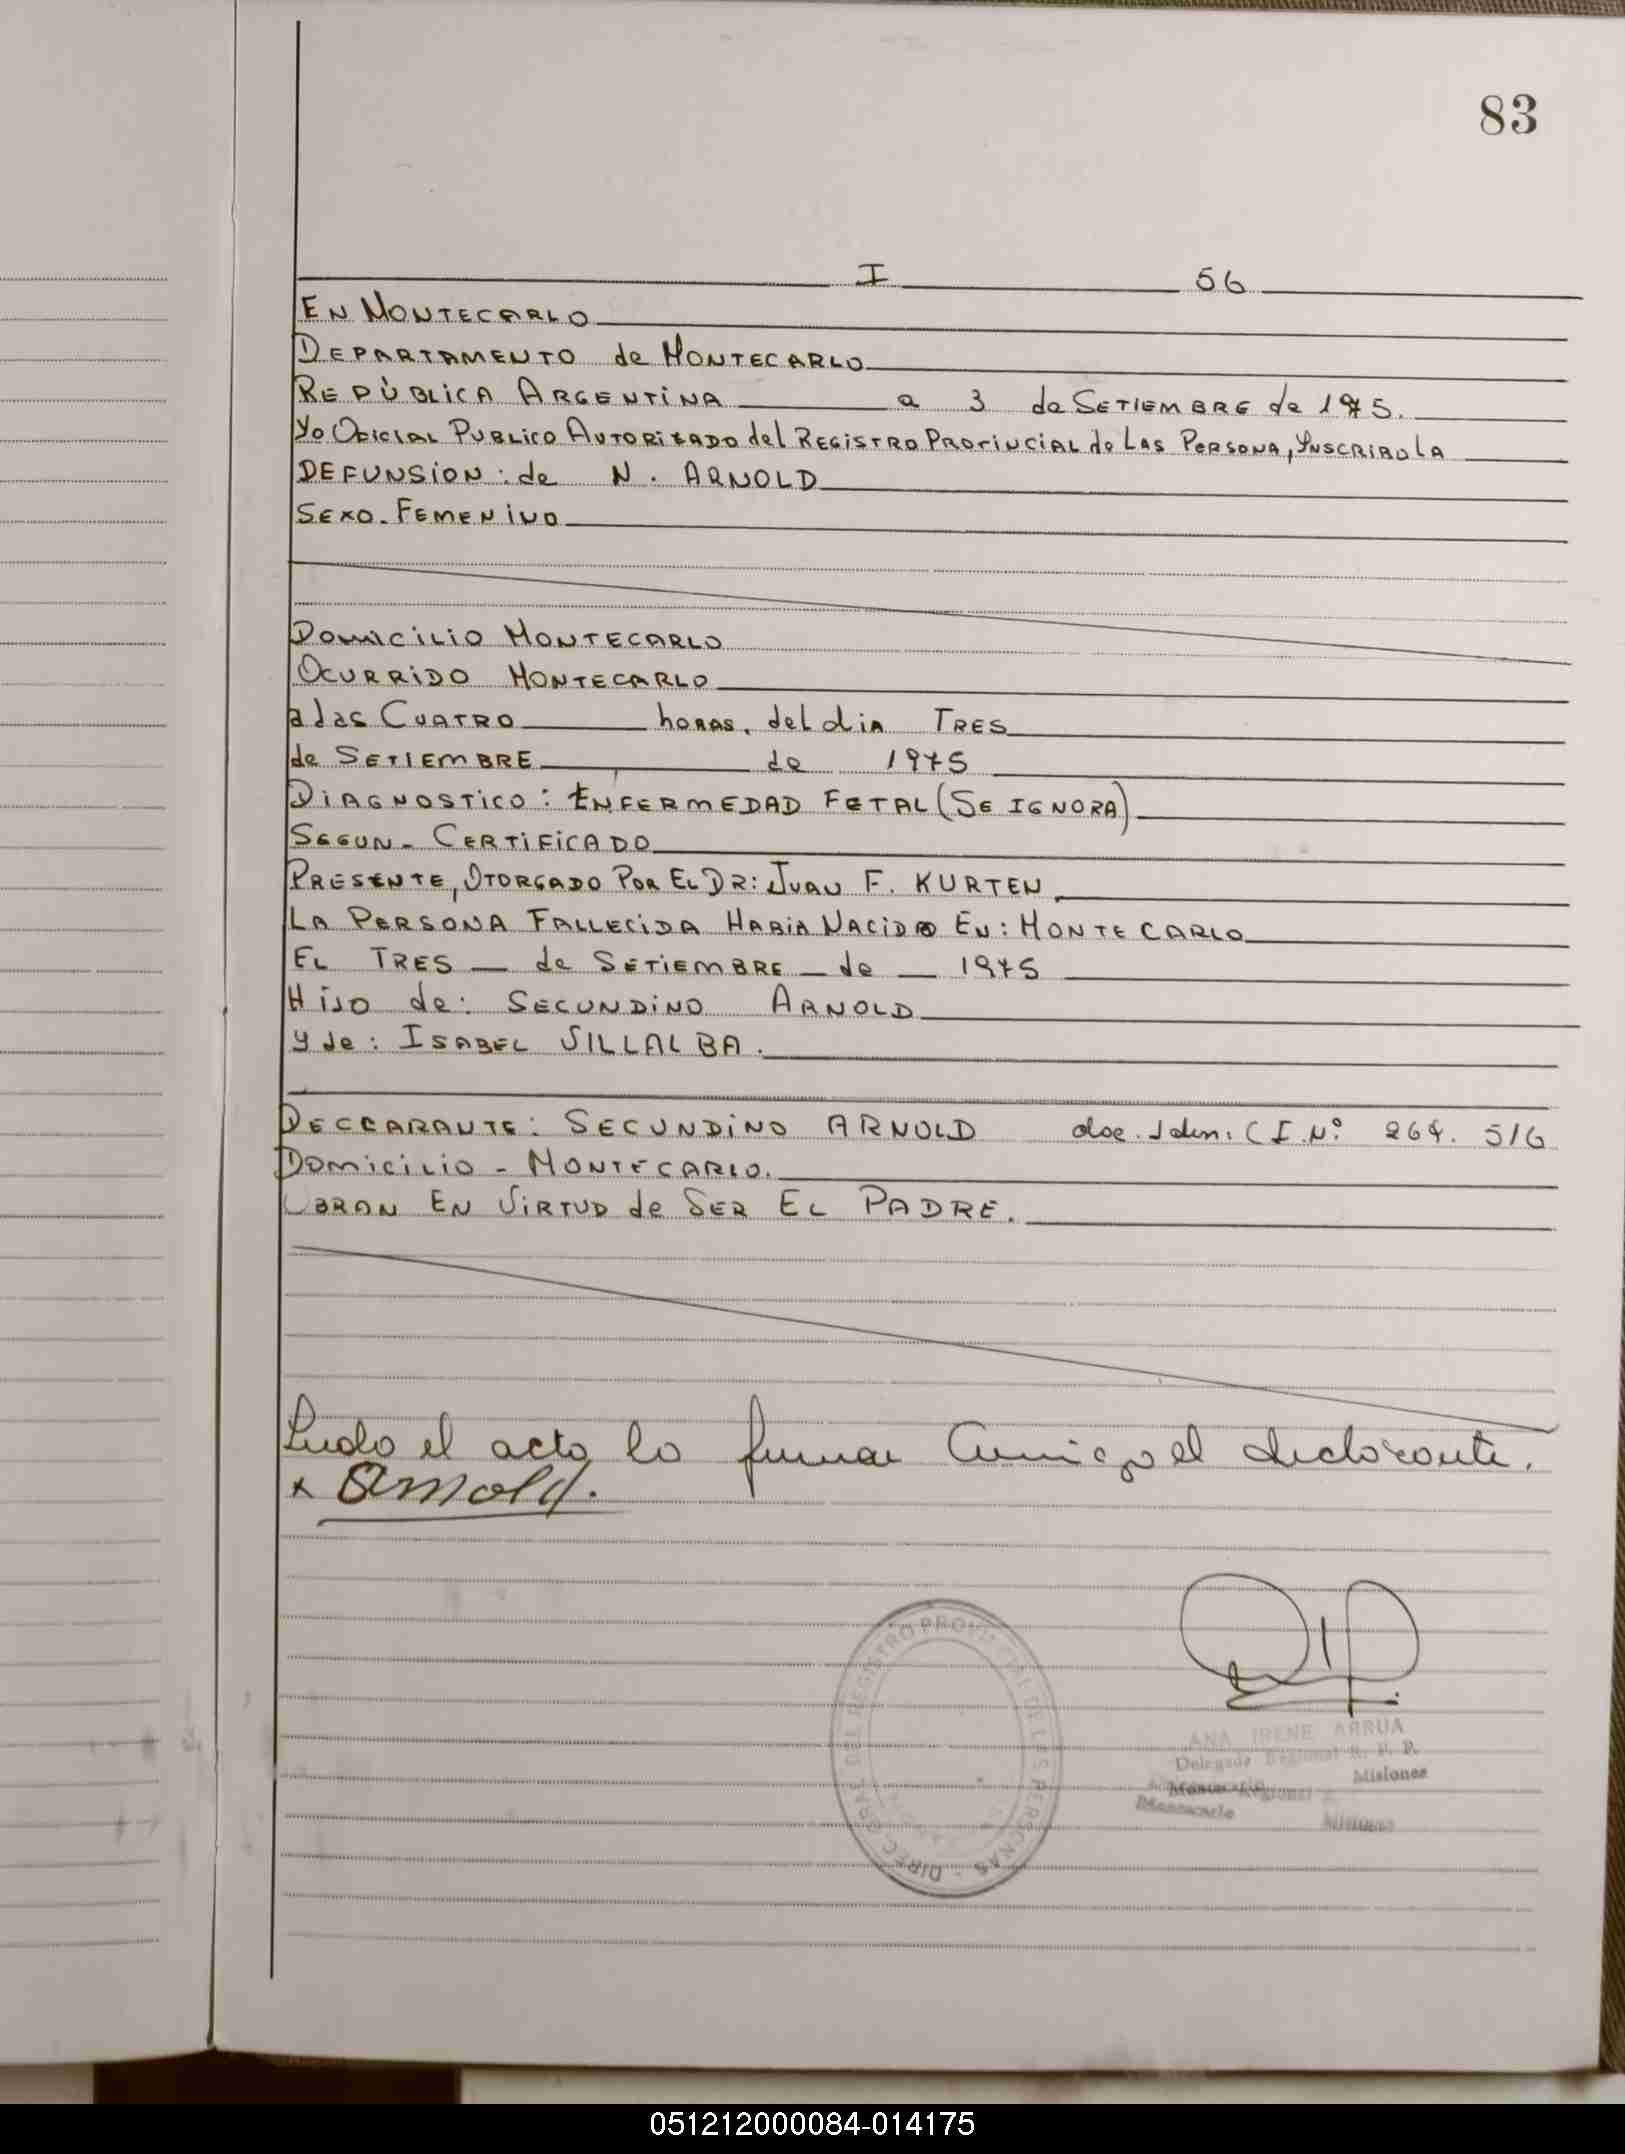 83
I 56
EN MONTECARLO
DEPARTAMENTO de MONTECARLO
REPÚBLICA ARGENTINA a 3 de SETIEMBRE de 1975.
Yo OFICIAL PUBLICO AUTORIZADO del REGISTRO PROVINCIAL de LAS PERSONA, YNSCRIBO LA
DEFUNSION: de N. ARNOLD
SEXO. FEMENINO
DOMICILIO MONTECARLO
OCURRIDO MONTECARLO
a las CUATRO horas, del dia TRES
de SETIEMBRE de 1975
DIAGNOSTICO: ENFERMEDAD FETAL (SE IGNORA)
SEGUN - CERTIFICADO
PRESENTE, OTORGADO POR EL DR: JUAN F. KURTEN
LA PERSONA FALLECIDA HABIA NACIDO EN: MONTECARLO
EL TRES - de SETIEMBRE - de - 1975
HIJO de: SECUNDINO ARNOLD
y de: ISABEL VILLALBA.
DECLARANTE: SECUNDINO ARNOLD doc. Iden. C I. Nº 264. 516
DOMICILIO - MONTECARLO.
OBRAN EN VIRTUD de SER EL PADRE.
Leido el acta la firma Conmigo el declarante.
x Arnold.
DIREC. GRAL. DEL REGISTRO PROVINCIAL DE LAS PERSONAS -
ANA IRENE ARRUA
Delegada Regional R. P. P.
Misiones
Regional
Montecarlo Misiones
051212000084-014175